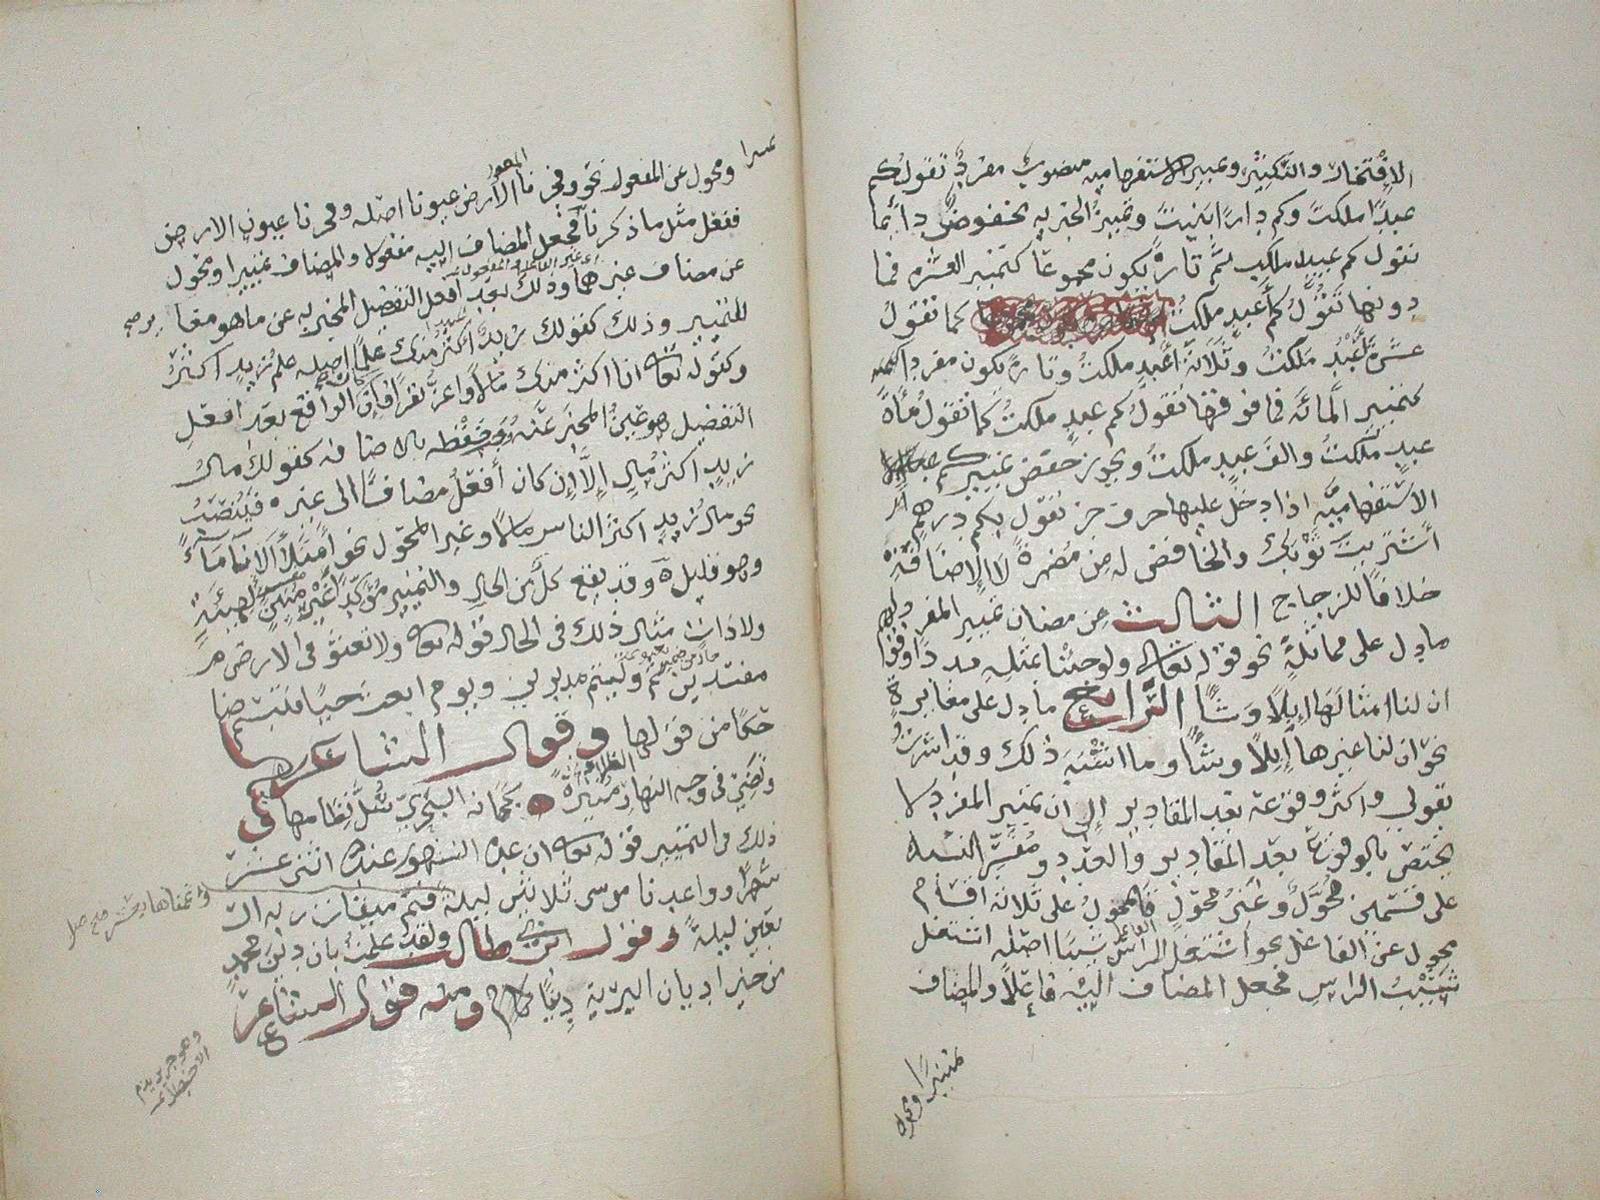 الافتخار والتكثير وتمييز الاستفهامية منصوب مفرد تقول كم
عبدًا ملكت وكم دارًا بنيت وتمييز الخبرية مخفوض دائما
تقول كم عبيد ملكت ثم تارة يكون مجموعا كتمييز العشرة فما
دونها تقول كم أعبد ملكت كما تقول
عشرة أعبد ملكت وثلاثة أعبد ملكت وتارة يكون مفردا
كتمييز المائة فما فوقها تقول كم عبد ملكت كما تقول مأة
عبد ملكت والف عبد ملكت ويجوز خفض تمييز كم
الاستفهامية اذا دخل عليها حرف جر تقول بكم درهم
اشتريت ثوبك والخافض له من مضمرة لا الاضافة
خلافا للزجاج الثالث من مضان تمييز المفرد
ما دل على مماثلة نحو قوله تعالى ولو جئنا بمثله مددا وقولهم
ان لنا امثالها إبلا وشاءً الرابع ما دل على مغايرة
نحو ان لنا غيرها إبلا وشاءً وما اشبه ذلك وقد اشرت
بقولي واكثر وقوعه بعد المقادير الى ان تمييز المفرد لا
يختص بالوقوع بعد المقادير والعدد ومفسر النسبة
على قسمين محوّل وغير محوّل فالمحول على ثلاثة اقسام
محول عن الفاعل نحو اشتعل الراس شيبا اصله اشتعل
شيب الراس فجعل المضاف اليه فاعلا والمضاف
تمييزا ومحول
ومحول عن المفعول نحو وفجرنا الارض عيونا اصله وفجرنا عيون الارض
ففعل مثل ما ذكرنا فجعل المضاف اليه مفعولا والمضاف تمييزا ومحول
عن مضاف غيرهما وذلك بعد أفعل التفضيل المخبر به عن ما هو مغاير
للتمييز وذلك كقولك زيد أكثر منك علما اصله علم زيد اكثر
وكقوله تعالى انا اكثر منك مالا واعز نفرا فان كان الواقع بعد افعل
التفضيل هو عين المخبر عنه وجب خفضه بالاضافه كقولك مال
زيد اكثر مال إلا إن كان أفعل مضافا الى غيره فينصب
نحو مال زيد اكثر الناس مالا وغير المحول نحو امتلأ الاناء ماءً
وهو قليل وقد يقع كل من الحال والتمييز مؤكدا غير مبين لهيئة
ولا ذات مثال ذلك في الحال قوله تعالى ولا تعثو في الارض
مفسدين ثم وليتم مدبرين ويوم ابعث حيا فتبسم ضا
حكا من قولها وقول الشاعر
وتضيء في وجه النهار منيرة كجمانة البحري سُلّ نظامها
ذلك في التمييز قوله تعالى ان عدة الشهور عند الله اثنى عشر
شهرا وواعدنا موسى ثلاثين ليلة فتم ميقات ربه ار
بعين ليلة وقول ابي طالب ولقد علمت بان دين محمد
من خير اديان البرية دينا ومنه قول الشاعر